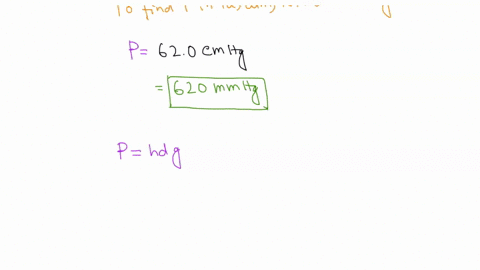 To find P in
P = 62.0 cmHg
= 620 mmHg
P = hdg